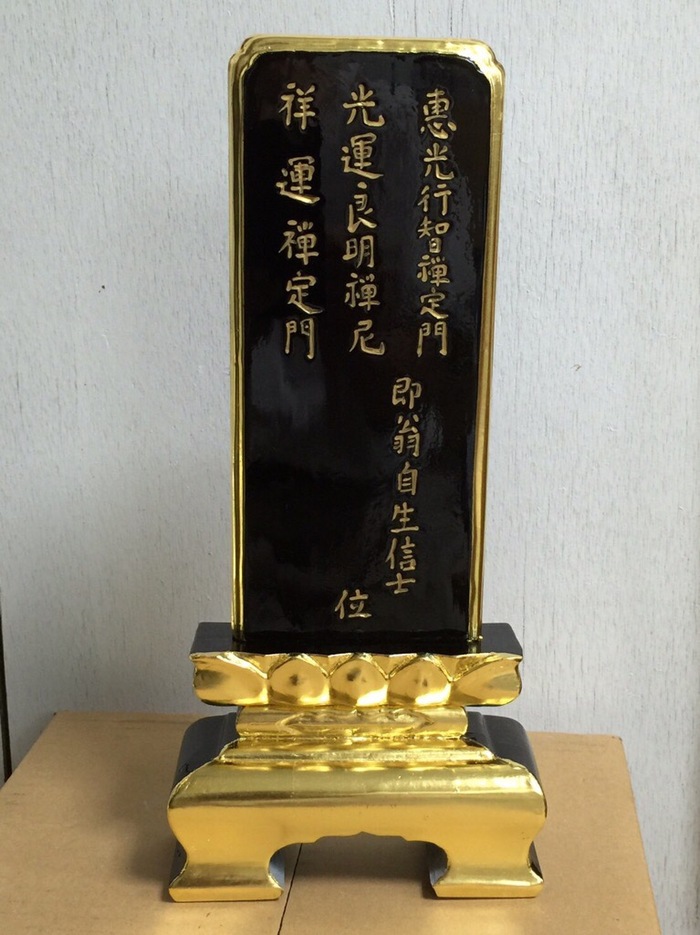 惠光行智禅定門
光運良明禅尼
祥運禅定門
即翁自生信士
位